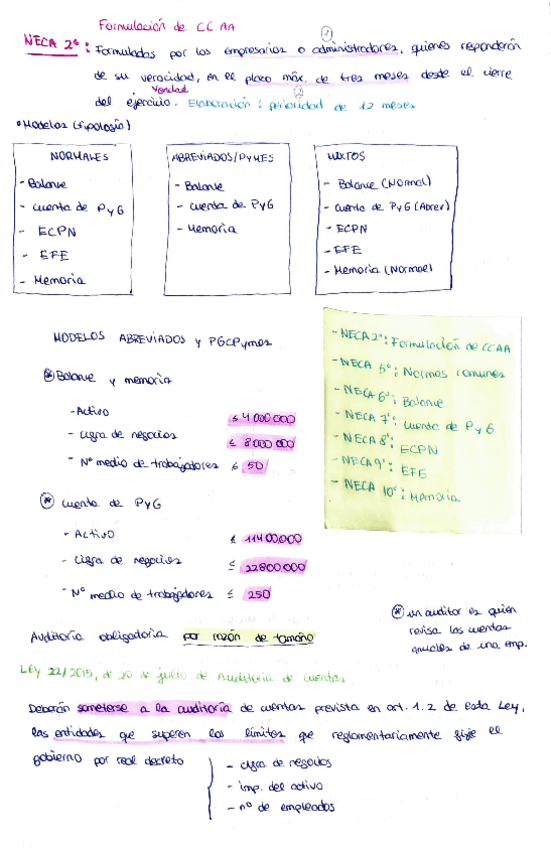 Formulación de CCAA
NECA 2ª: Formuladas por los empresarios o administradores, quienes responderán
de su veracidad, en el plazo máx. de tres meses desde el cierre
Verdad
del ejercicio. Elaboración: perioridad de 12 meses
• Modelos (tipología)
NORMALES
- Balance
- Cuenta de PyG
- ECPN
- EFE
- Memoria
ABREVIADOS/PYMES
- Balance
- Cuenta de PyG
- Memoria
MIXTOS
- Balance (Normal)
- Cuenta de PyG (Abrev)
- ECPN
- EFE
- Memoria (Normal)
MODELOS ABREVIADOS y PGCPymes
* Balance y memoria
- Activo ≤ 4 000 000
- Cifra de negocios ≤ 8 000 000
- Nº medio de trabajadores ≤ 50
* Cuenta de PyG
- Activo ≤ 11400.000
- Cifra de negocios ≤ 22800.000
- Nº medio de trabajadores ≤ 250
- NECA 2ª: Formulación de CCAA
- NECA 5ª: Normas comunes
- NECA 6ª: Balance
- NECA 7ª: Cuenta de PyG
- NECA 8ª: ECPN
- NECA 9ª: EFE
- NECA 10ª: Memoria
* un auditor es quien
revisa las cuentas
anuales de una emp.
Auditoría obligatoria por razón de tamaño
LEY 22/2015, de 20 de julio de Auditoría de cuentas
Deberán someterse a la auditoría de cuentas prevista en art. 1.2 de esta Ley,
las entidades que superen los límites que reglamentariamente fije el
gobierno por real decreto
- Cifra de negocios
- imp. del activo
- nº de empleados